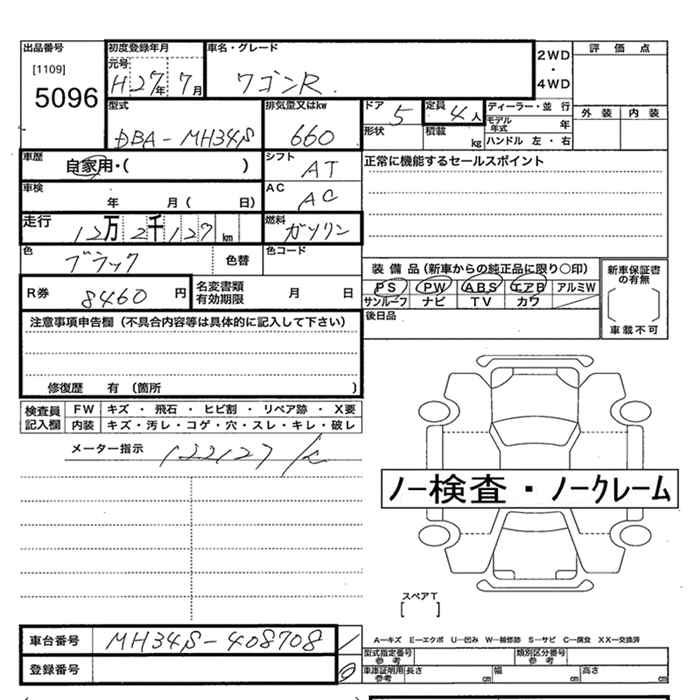 出品番号 初度登録年月 車名・グレード 2WD・4WD 評価点
[1109] 元号
5096 H27年 7月 ワゴンR
型式 排気量又はkw ドア 定員 ディーラー・並行 外装 内装
DBA-MH34S 660 5 4人 モデル年式 年
形状 積載 kg ハンドル 左・右
車歴 自家用・( ) シフト AT 正常に機能するセールスポイント
車検 年 月( 日) AC AC
走行 12万2千127km 燃料 ガソリン
色 ブラック 色替 色コード
装備品(新車からの純正品に限り○印) 新車保証書の有無
R券 8460円 名変書類有効期限 月 日 PS PW ABS エアB アルミW
サンルーフ ナビ TV カワ
注意事項申告欄(不具合内容等は具体的に記入して下さい) 後日品 車載不可
修復歴 有 (箇所 )
検査員記入欄 FW キズ・飛石・ヒビ割・リペア跡・X要
内装 キズ・汚レ・コゲ・穴・スレ・キレ・破レ
メーター指示 122127 K
ノー検査・ノークレーム
スペアT
[ ]
車台番号 MH34S-408708
A―キズ E―エクボ U―凹み W―補修跡 S―サビ C―腐食 XX―交換済
型式指定番号 参考 類別区分番号 参考
登録番号 車庫証明用参考 長さ cm 幅 cm 高さ cm